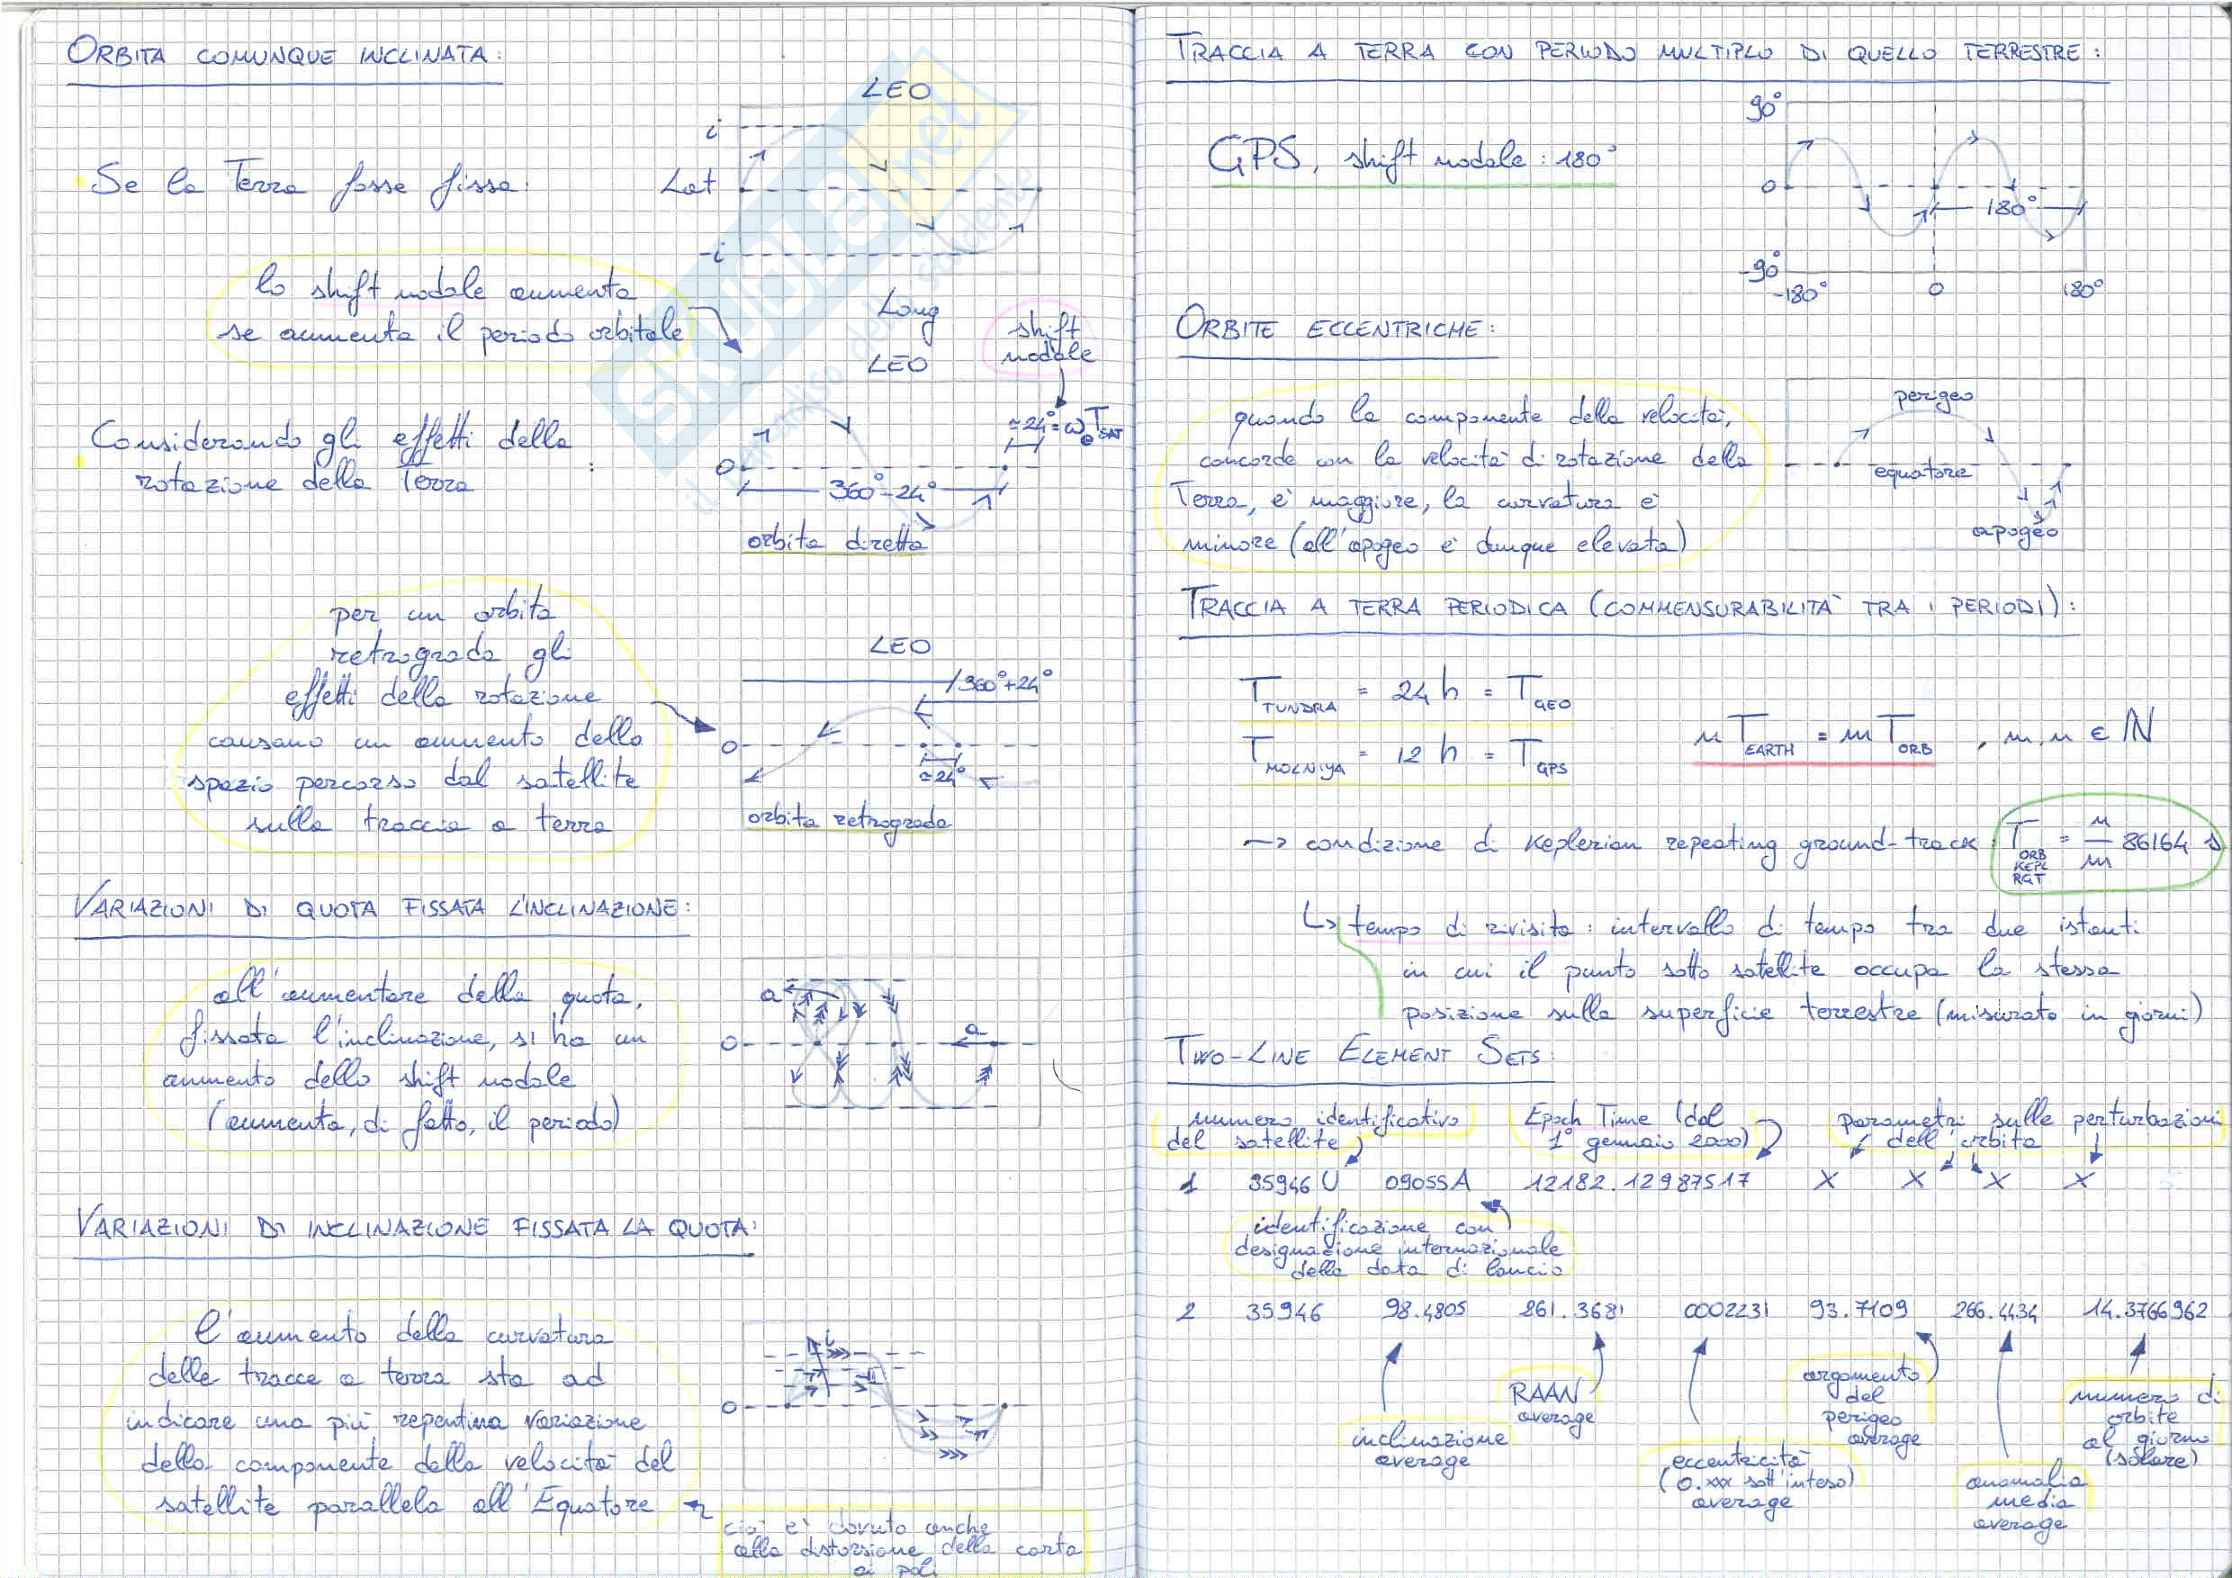 ORBITA COMUNQUE INCLINATA:
LEO
i
• Se la Terra fosse fissa:
Lat
-i
lo shift nodale aumenta
se aumenta il periodo orbitale
Long
shift
nodale
LEO
• Considerando gli effetti della
rotazione della Terra :
≃24° = ω⊕ T SAT
0
360°-24°
orbita diretta
per un orbita
retrograda gli
effetti della rotazione
causano un aumento dello
spazio percorso dal satellite
sulla traccia a terra
LEO
360°+24°
0
≃24°
orbita retrograda
VARIAZIONI DI QUOTA FISSATA L'INCLINAZIONE:
all'aumentare della quota,
fissata l'inclinazione, si ha un
aumento dello shift nodale
(aumenta, di fatto, il periodo)
a
a
0
VARIAZIONI DI INCLINAZIONE FISSATA LA QUOTA:
l'aumento della curvatura
delle tracce a terra sta ad
indicare una più repentina variazione
della componente della velocità del
satellite parallela all'Equatore
i
0
ciò è dovuto anche
alla distorsione della carta
ai poli
SKUOLA.net
il paradiso dello studente
TRACCIA A TERRA CON PERIODO MULTIPLO DI QUELLO TERRESTRE:
GPS, shift nodale: 180°
90°
0
180°
-90°
-180°
0
180°
ORBITE ECCENTRICHE:
quando la componente della velocità,
concorde con la velocità di rotazione della
Terra, è maggiore, la curvatura è
minore (all'apogeo è dunque elevata)
perigeo
equatore
apogeo
TRACCIA A TERRA PERIODICA (COMMENSURABILITÀ TRA I PERIODI):
T TUNDRA = 24 h = T GEO
T MOLNIYA = 12 h = T GPS
n T EARTH = m T ORB , m, n ∈ ℕ
→ condizione di Keplerian repeating ground-track: T ORB KEPL RGT = n/m 86164 s
↳ tempo di rivisita: intervallo di tempo tra due istanti
in cui il punto sotto satellite occupa la stessa
posizione sulla superficie terrestre (misurato in giorni)
TWO-LINE ELEMENT SETS:
numero identificativo
del satellite
Epoch Time (dal
1° gennaio 2000)
parametri sulle perturbazioni
dell'orbita
1 35946 U 09055A 12182.12987517 X X X X
identificazione con
designazione internazionale
della data di lancio
2 35946 98.4805 261.3681 0002231 93.7109 266.4434 14.3766962
inclinazione
average
RAAN
average
eccentricità
(0.xxx sott'inteso)
average
argomento
del
perigeo
average
anomalia
media
average
numero di
orbite
al giorno
(solare)